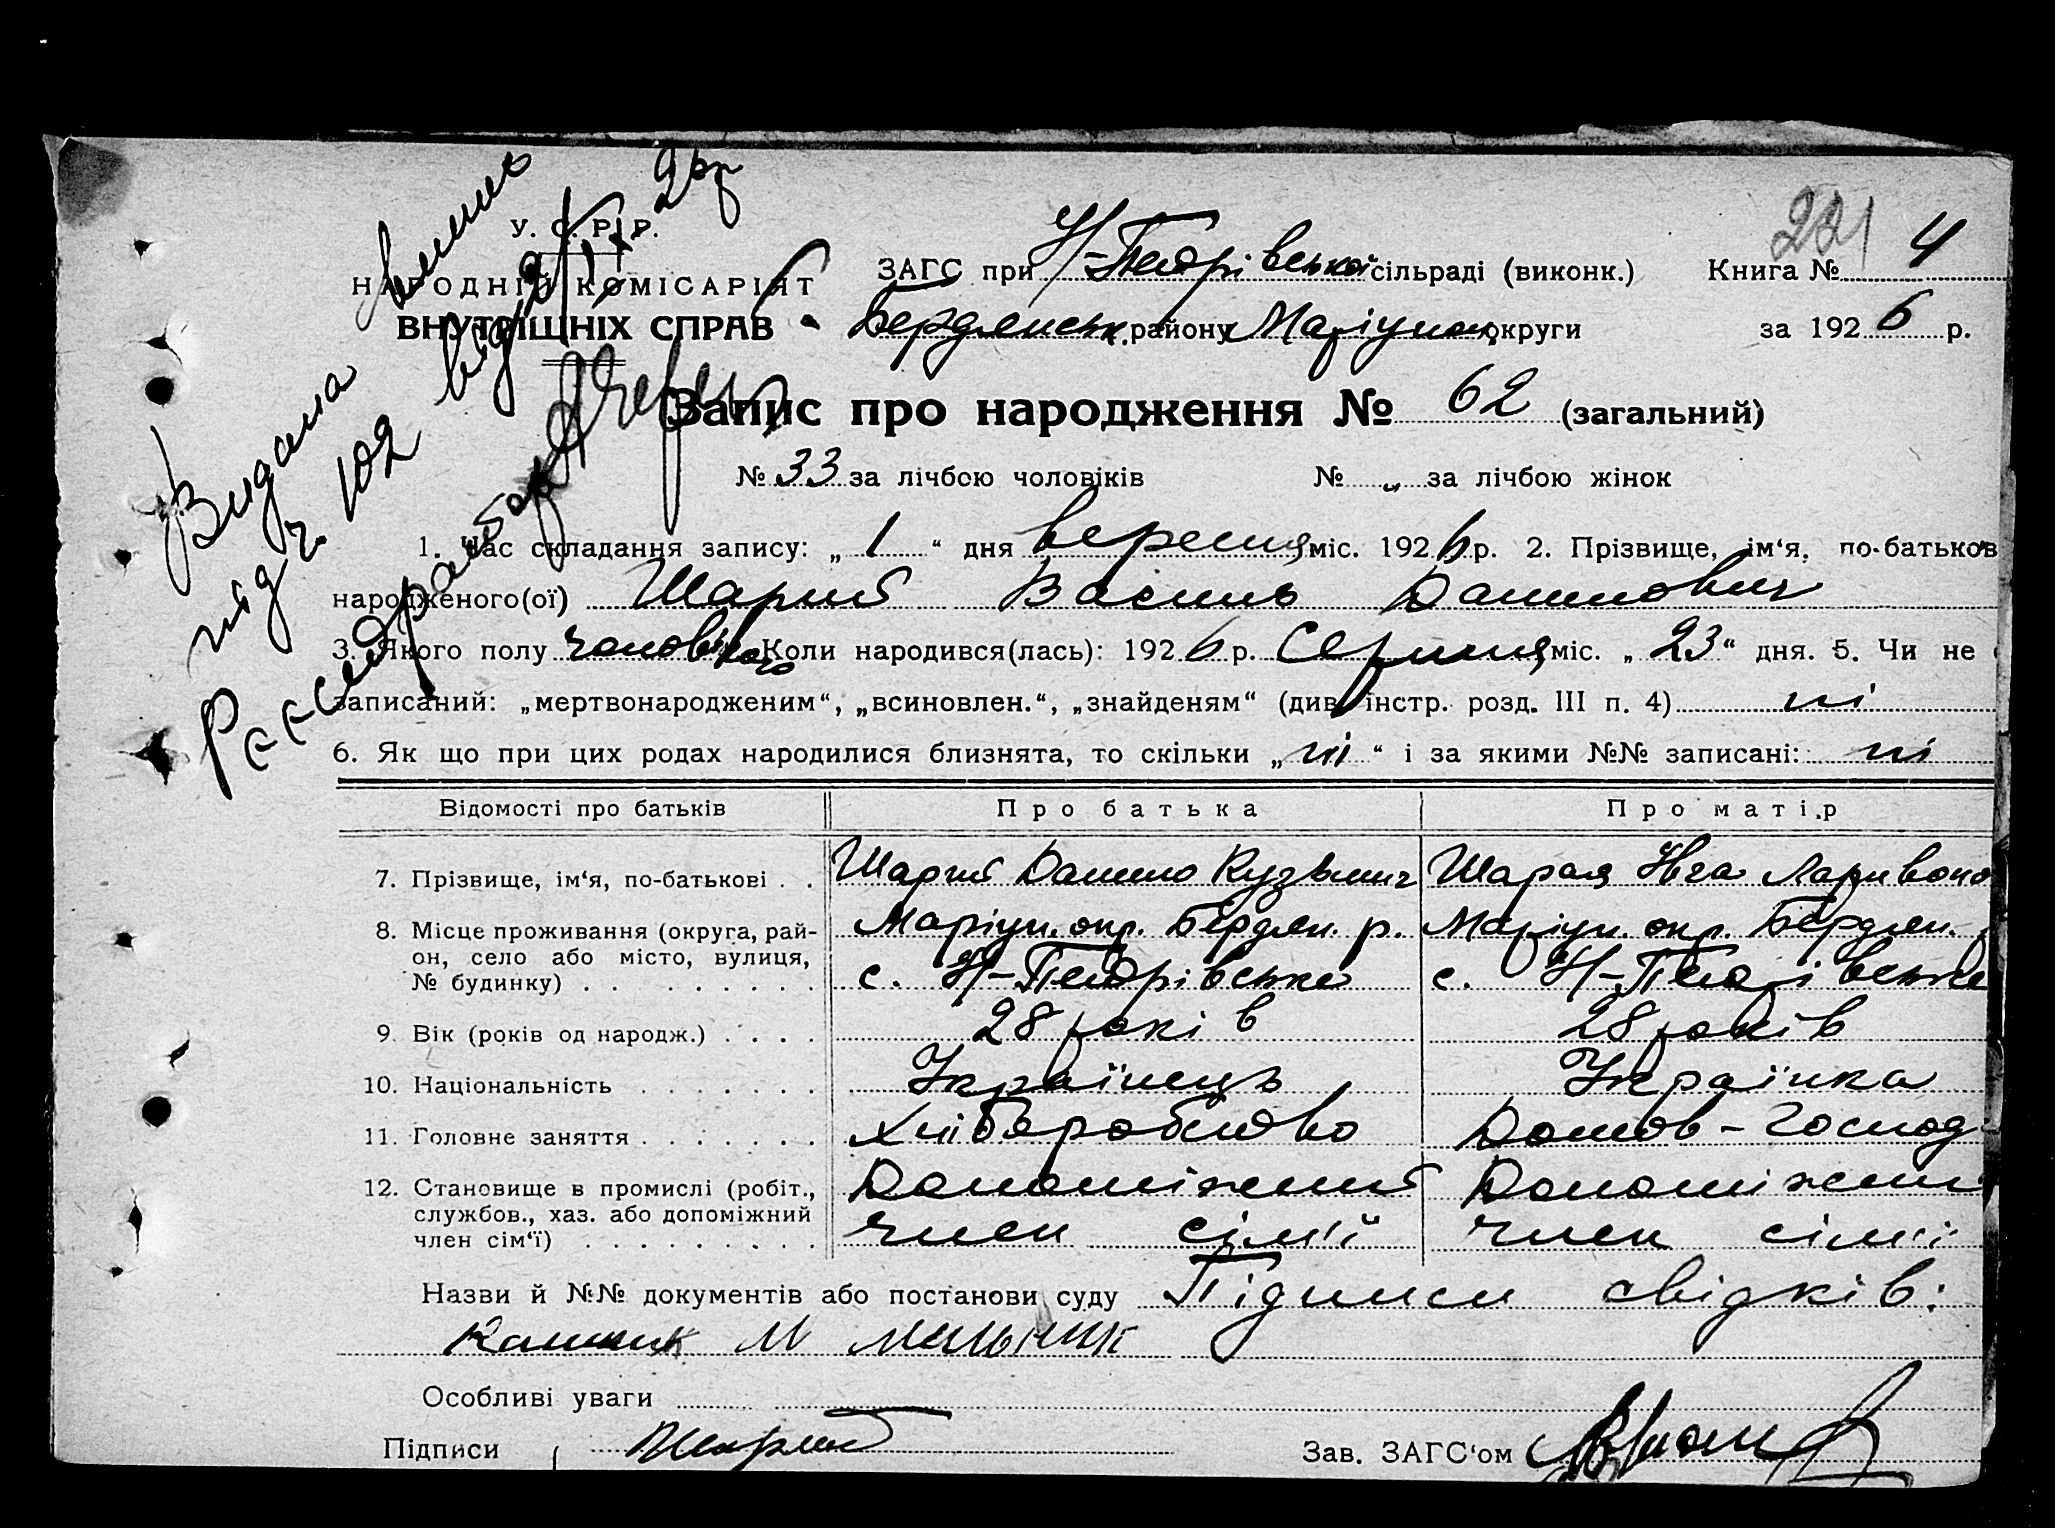 У. С. Р. Р.
НАРОДНІЙ КОМІСАРІЯТ
ВНУТРІШНІХ СПРАВ
Видана
під ч. 102 від
Реєстратор
221
ЗАГС при Н-Петрівській сільраді (виконк.) Книга № 4
Бердянськ. району Маріупол. округи за 1926 р.
Запис про народження № 62 (загальний)
№ 33 за лічбою чоловіків № „ за лічбою жінок
1. Час складання запису: „1“ дня вересня міс. 1926 р. 2. Прізвище, ім‘я, по-батьков
народженого(ої) Шарий Василь Данилович
3. Якого полу чоловічого Коли народився(лась): 1926 р. серпня міс. „23“ дня. 5. Чи не
записаний: „мертвонародженим“, „всиновлен.“, „знайденям“ (див. інстр. розд. III п. 4) ні
6. Як що при цих родах народилися близнята, то скільки „ні“ і за якими №№ записані: ні
Відомості про батьків Про батька Про матір
7. Прізвище, ім‘я, по-батькові . . Шарий Данило Кузьмич Шарая Ларивоно
8. Місце проживання (округа, рай- Маріуп. окр. Бердян. р. Маріуп. окр. Бердян.
он, село або місто, вулиця,
№ будинку) . . . . . . . . . с. Н-Петрівське с. Н-Петрівське
9. Вік (років од народж.) . . . . 28 років 28 років
10. Національність . . . . . . . Українець Українка
11. Головне заняття . . . . . . . Хліборобство Домов-господ
12. Становище в промислі (робіт., Допоміжний Допоміжний
службов., хаз. або допоміжний
член сім‘ї) . . . . . . . . . член сім'ї член сім'ї
Назви й №№ документів або постанови суду Підписи свідків:
М Мельник
Особливі уваги
Підписи Шарий Зав. ЗАГС‘ом